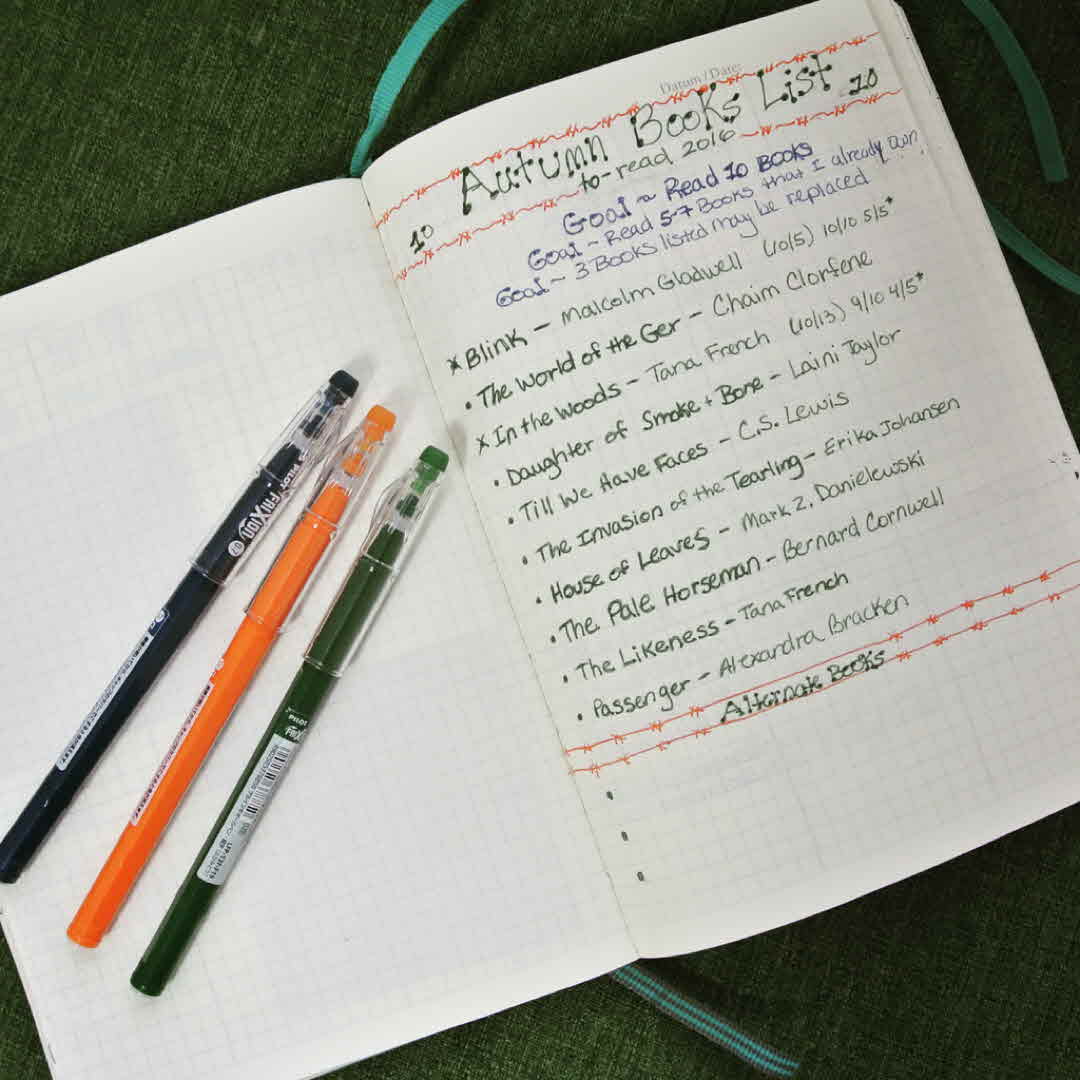 Datum / Date:
Autumn Books List
10 10
to-read 2016
Goal ~ Read 10 Books
Goal ~ Read 5-7 Books that I already own
Goal ~ 3 Books listed may be replaced
x Blink - Malcolm Gladwell (10/5) 10/10 5/5*
• The World of the Ger - Chaim Clorfene
x In the Woods - Tana French (10/13) 9/10 4/5*
• Daughter of Smoke + Bone - Laini Taylor
• Till We Have Faces - C.S. Lewis
• The Invasion of the Tearling - Erika Johansen
• House of Leaves - Mark Z. Danielewski
• The Pale Horseman - Bernard Cornwell
• The Likeness - Tana French
• Passenger - Alexandra Bracken
Alternate Books
PILOT
FRIXION
PILOT